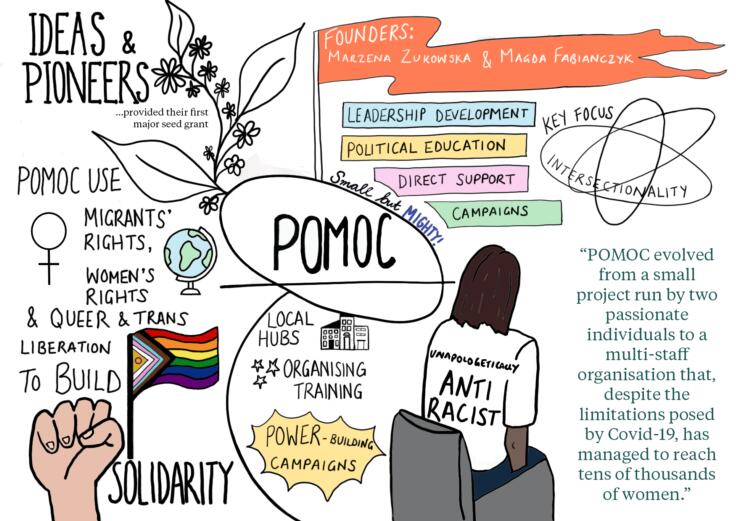 IDEAS &
PIONEERS
...provided their first
major seed grant
FOUNDERS:
MARZENA ZUKOWSKA & MAGDA FABIANCZYK
LEADERSHIP DEVELOPMENT
POLITICAL EDUCATION
DIRECT SUPPORT
CAMPAIGNS
KEY FOCUS
INTERSECTIONALITY
Small but MIGHTY!
POMOC
POMOC USE
MIGRANTS'
RIGHTS,
WOMEN'S
RIGHTS
& QUEER & TRANS
LIBERATION
TO BUILD
SOLIDARITY
LOCAL
HUBS
ORGANISING
TRAINING
POWER-BUILDING
CAMPAIGNS
UNAPOLOGETICALLY
ANTI
RACIST
“POMOC evolved
from a small
project run by two
passionate
individuals to a
multi-staff
organisation that,
despite the
limitations posed
by Covid-19, has
managed to reach
tens of thousands
of women.”